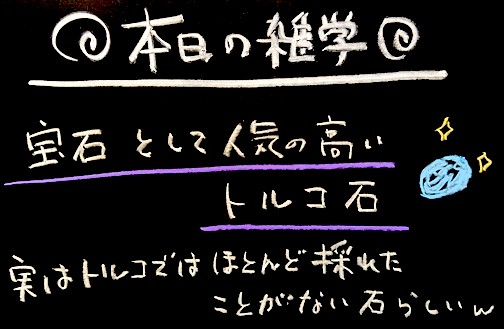 本日の雑学
宝石として人気の高い
トルコ石
実はトルコではほとんど採れた
ことがない石らしいw